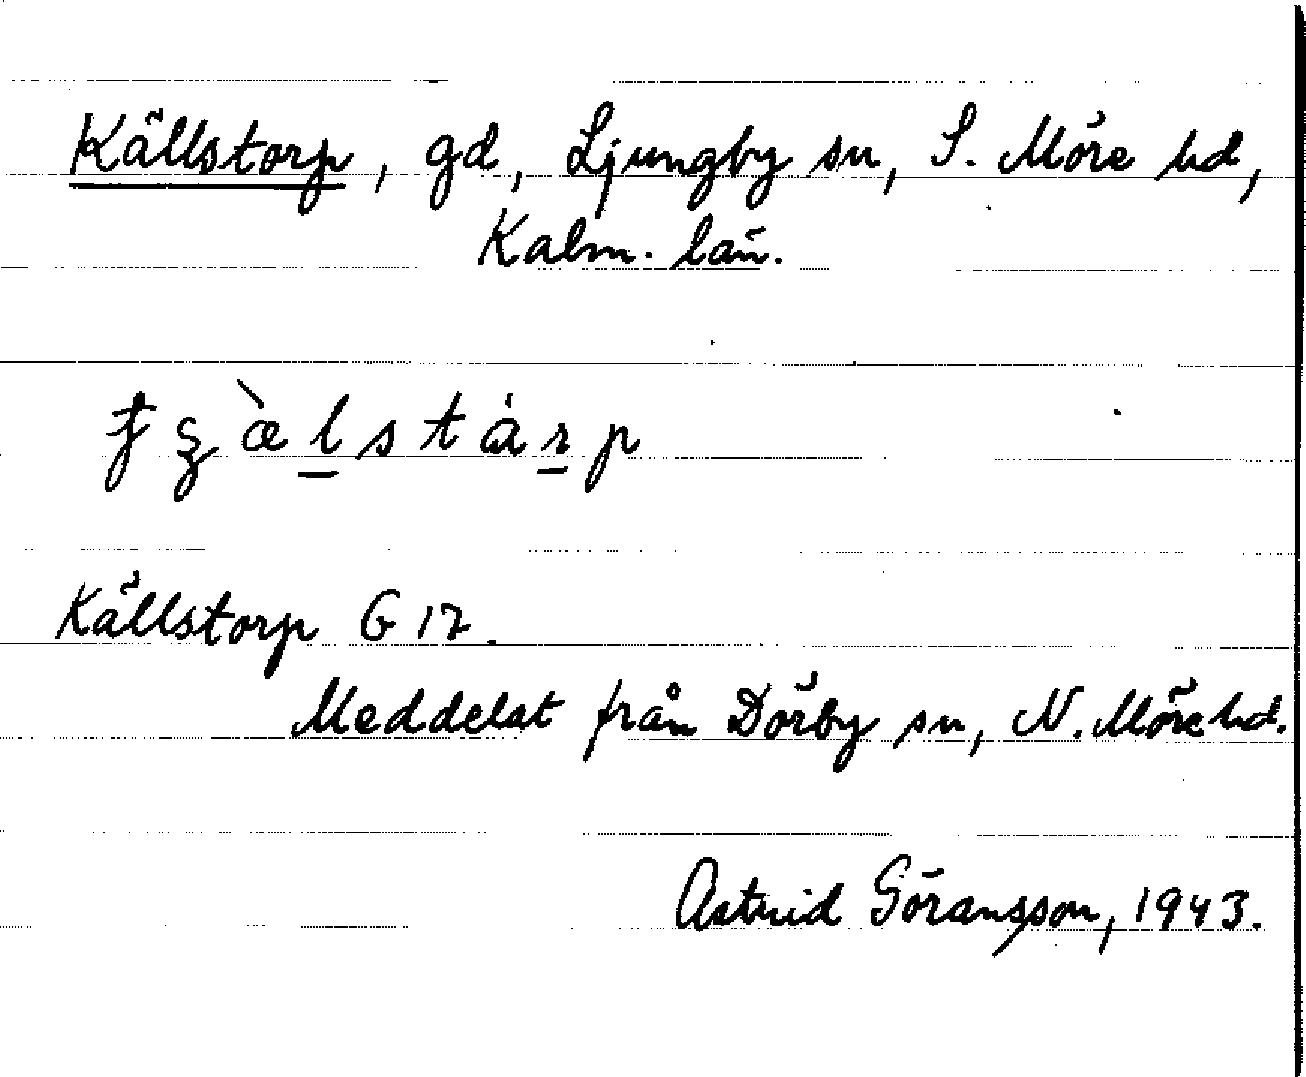 Källstorp, gd, Ljungby sn, S. Möre hd,
Kalm. län.
Källstorp G 17.
Meddelat från Dörby sn, N. Möre hd.
Astrid Göransson, 1943.